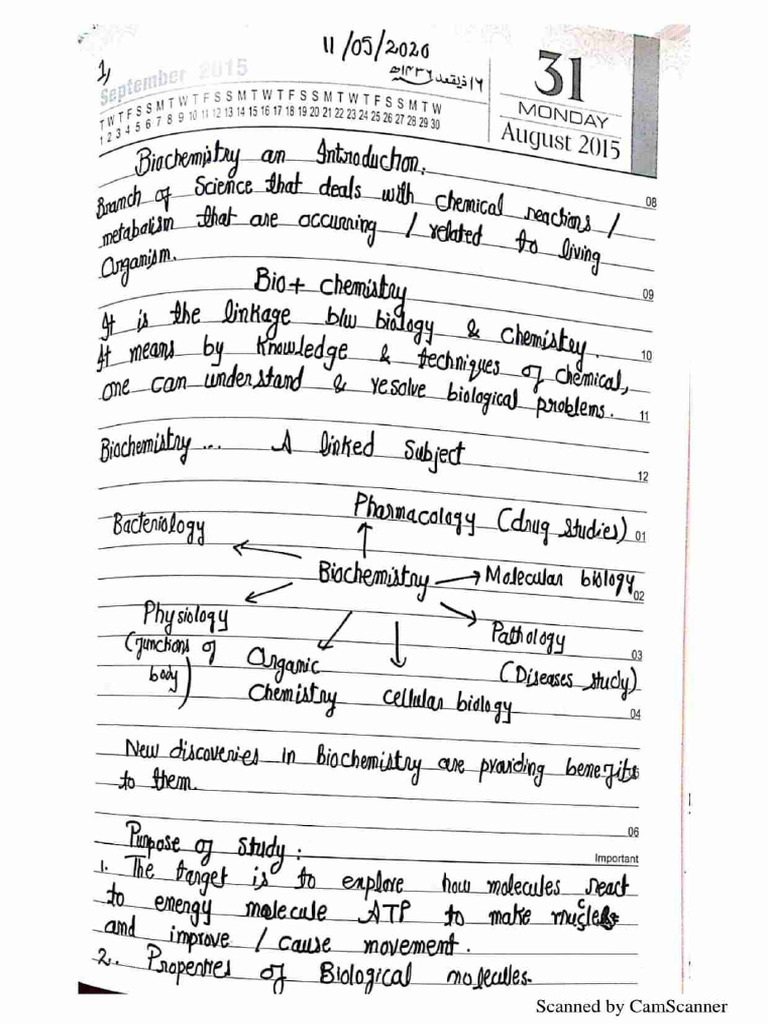 11/05/2020
1,
September 2015
31
MONDAY
August 2015
T W T F S S M T W T F S S M T W T F S S M T W T F S S M T W
1 2 3 4 5 6 7 8 9 10 11 12 13 14 15 16 17 18 19 20 21 22 23 24 25 26 27 28 29 30
Biochemistry an Introduction:
Branch of Science that deals with chemical reactions /
08
metabalism that are occurring / related to living
Organism.
09
Bio + chemistry
It is the linkage b/w biology & chemistry.
10
It means by knowledge & techniques of chemical,
one can understand & resolve biological problems.
11
Biochemistry ... A linked subject
12
Pharmacology (drug studies)
01
Bacteriology
Biochemistry
Molecular biology
02
Physiology
(functions of
body)
Pathology
03
(Diseases study)
Organic
Chemistry
cellular biology
04
New discoveries in Biochemistry are providing benefits
to them.
06
Purpose of study:
Important
1. The target is to explore how molecules react
to energy molecule ATP to make
and improve / cause movement.
2. Properties of Biological molecules.
Scanned by CamScanner